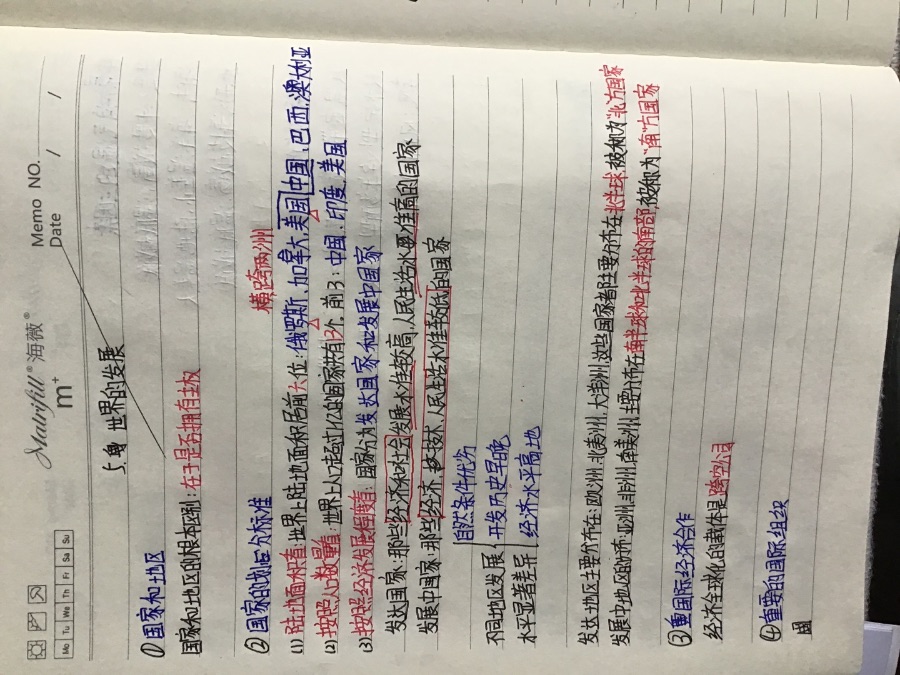 Matrifill® 海薇®
m⁺
Memo NO.
Date / /
Mo Tu We Th Fr Sa Su
5. 世界的发展
① 国家和地区
国家和地区的根本区别:在于是否拥有主权
② 国家的划分标准
横跨两洲
(1) 陆地面积看:世界上陆地面积名前六位:俄罗斯、加拿大、美国、中国、巴西、澳大利亚
(2) 按照人口数量看:世界上人口超过1亿的国家共有13个,前3:中国、印度、美国
(3) 按照经济发展程度看:国家分为发达国家和发展中国家
发达国家:那些经济和社会发展水准较高,人民生活水准高的国家
发展中国家:那些经济、技术、人民生活水准较低的国家
不同地区发展
水平显著差异
自然条件优劣
开发历史早晚
经济水平高地
发达地区主要分布在:欧洲、北美洲、大洋洲,这些国家都主要分布在北半球,被称为“北方国家
发展中地区的分布:亚洲、非洲、南美洲,主要分布在南半球和北半球的南部,被称为“南”方国家
③ 重国际经济合作
经济全球化的载体是跨空公司
④ 重要的国际组织